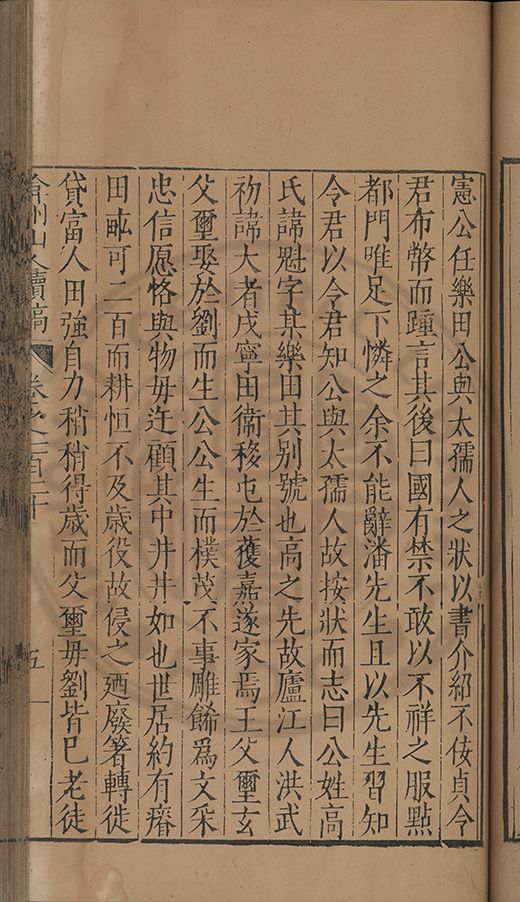 憲公任樂田公與太孺人之狀以書介紹不佞貞令
君布幣而踵言其後曰國有禁不敢以不祥之服點
都門唯足下憐之余不能辭潘先生且以先生習知
令君以令君知公與太孺人故按狀而志曰公姓高
氏諱魁字某樂田其别號也高之先故廬江人洪武
初諱大者戍寧田衞移屯於獲嘉遂家焉王父璽玄
父璽娶於劉而生公公生而樸茂不事雕餙爲文采
忠信愿恪與物毋迕顧其中井井如也世居約有瘠
田畝可二百而耕恒不及歲役故侵之廼廢箸轉徙
貸富人田強自力稍稍得歲而父璽毋劉皆已老徒
弇州山人續稿 卷之一百二十 五